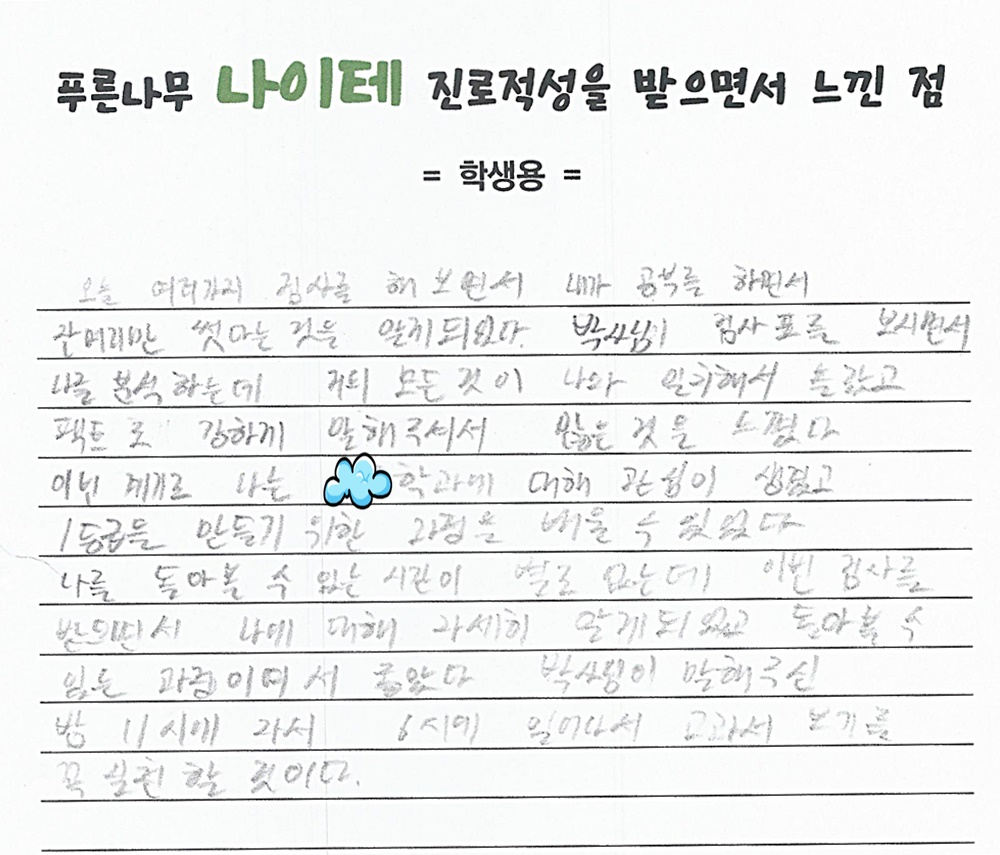 푸른나무 나이테 진로적성을 받으면서 느낀 점
= 학생용 =
오늘 여러가지 검사를 해 보면서 내가 공부를 하면서
썻다는 것을 알게되었다. 박사님이 검사 표를 보시면서
나를 분석 하는데 거의 모든 것이 나와 일치해서 놀랐고
팩트로 강하게 말해주셔서 많은 것을 느꼈다
이번 계기로 나는 학과에 대해 관심이 생겼고
1등급을 만들기 위한 과정을 배울 수 있었다
나를 돌아볼 수 있는 시간이 별로 없는데 이번 검사를
받으면서 나에 대해 자세히 알게되었고 돌아볼 수
있는 과정이여서 좋았다 박사님이 말해주신
밤 11시에 자서 6시에 일어나서 교과서 보기를
꼭 실천 할 것이다.